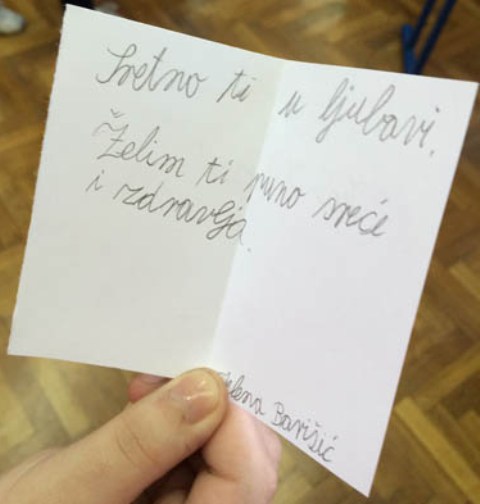 Sretno ti u ljubavi.
Želim ti puno sreće
i zdravlja.
Jelena Barišić